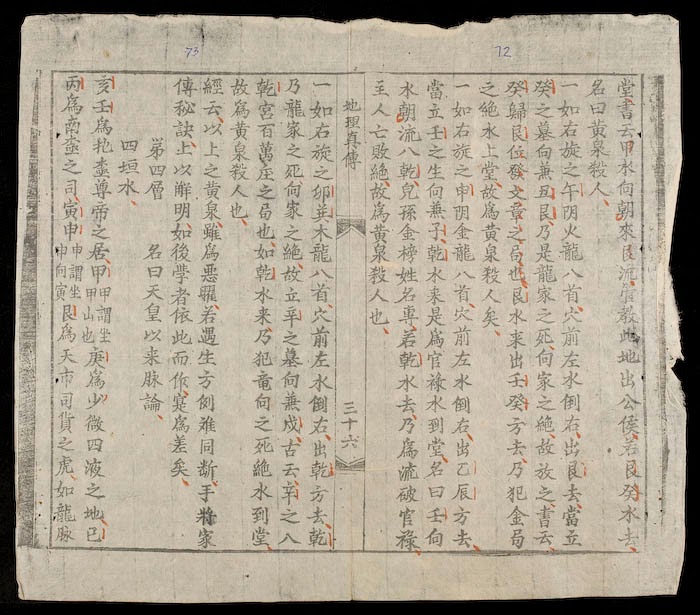 73
72
堂書云甲水向朝來艮流、管教此地出公侯、若艮癸水去、
名曰黃泉殺人、
一如右旋之午阴火龍八首穴前左水倒右、出艮去、當立
癸之墓向兼丑、艮乃是龍家之死向家之绝、故放之書云、
癸歸艮位發文章之局也、艮水来出壬癸方去乃犯金局
之绝水上堂、故為黃泉殺人矣、
一如右旋之申阴金龍八首穴前左水倒右、出乙辰方去、
當立壬之生向兼子、乾水來是為官祿水到堂名曰壬向
水朝流八乾兒孫金榜姓名專、若乾水去、乃為流破官祿
主人亡敗绝、故為黃泉殺人也、
地理真傳
三十六
一如右旋之卯木龍八首穴前左水倒右、出乾方去、乾
乃龍家之死向家之绝、故立辛之墓向兼戌、古云、辛之八
乾宮百萬庄之局也、如乾水来、乃犯竜向之死絶水到堂、
故為黃泉殺人也、
經云、以上之黃泉、雖為惡曜、若遇生方例難同断、手將家
傳秘訣上以解明、如後學者依此而作、寔為差矣、
第四層 名曰天皇以来脉論、
四垣水、
亥壬為尊帝之居、甲甲謂坐甲山也庚為少微四液之地、巳
丙為南之司、寅申申謂坐申向寅艮為天市司貨之虎、如龍脉